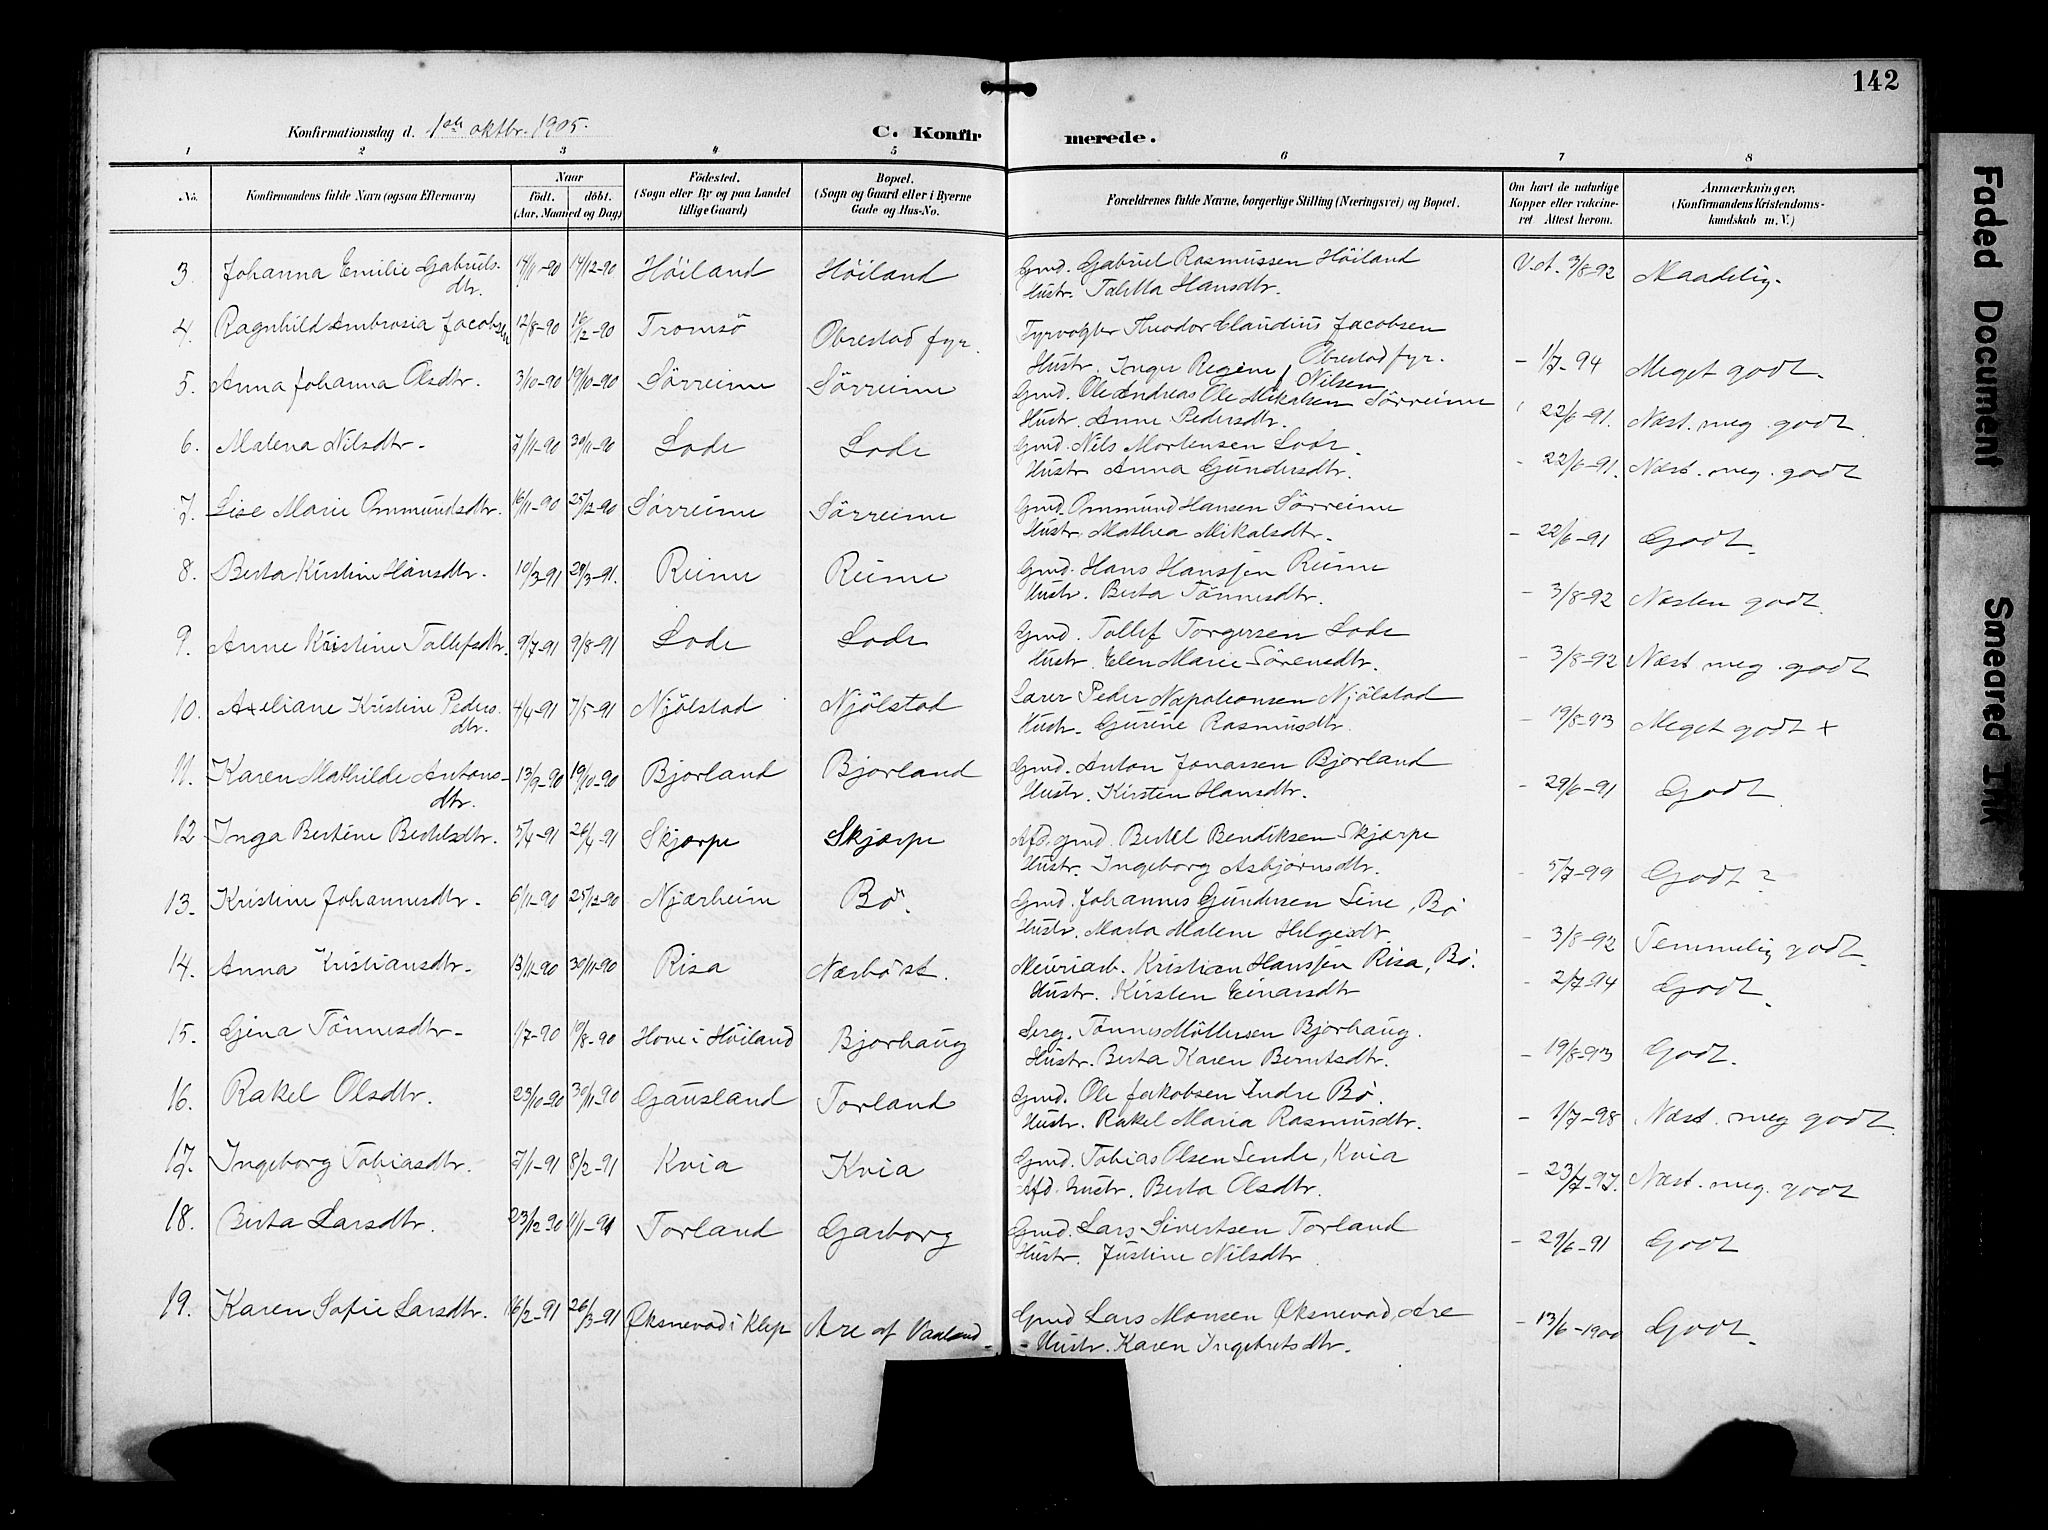 142
Konfirmationsdag d. 1ste oktbr. 1905.
C. Konfirmerede.
1 2 3 4 5 6 7 8
No. Konfirmandens fulde Navn (ogsaa Efternavn) Naar født. døbt. (Aar, Maaned og Dag) Födested. (Sogn eller By og paa Landet tillige Gaard) Bopæl. (Sogn og Gaard eller i Byerne Gade og Hus-No. Forældrenes fulde Navne, borgerlige Stilling (Næringsvei) og Bopæl. Om havt de naturlige Kopper eller vaccineret. Attest herom. Anmærkninger. (Konfirmandens Kristendomskundskab m. V.)
3. Johanna Emilie Gabriels- 14/11-90 14/12-90 Höiland Höiland Gmd. Gabriel Rasmussen Höiland V. at. 3/8-92 Maadelig.
dtr. Hustr. Taletta Hansdtr.
4. Ragnhild Ambrosia Jacobsen 12/8-90 Tromsö Obrestad fyr. Fyrvogter Theodor Claudius Jacobsen
Obrestad fyr.
Hustr. Inger Regine Nilsen - 1/7-94 Meget godt.
5. Anna Johanna Olsdtr. 3/10-90 19/10-90 Sörreime Sörreime Gmd. Ole Andreas Ole Mikalsen Sörreime
Hustr. Anne Pedersdtr. 22/6-91. Næst. meg. godt
6. Malena Nilsdtr. 7/11-90 30/11-90 Lode Lode Gmd. Nils Mortensen Lode.
Hustr. Anna Gundersdtr. - 22/6-91. Næst. meg. godt
7. Lise Marie Ommundsdtr. 16/11-90 25/12-90 Sörreime Sörreime Gmd. Ommund Hansen Sörreime
Hustr. Mathea Mikalsdtr. - 22/6-91 Godt.
8. Berta Kirstine Hansdtr. 10/3-91 29/3-91. Reime Reime Gmd. Hans Hanssen Reime
Hustr. Berta Tönnesdtr. - 3/8-92 Næsten godt.
9. Anne Kristine Tollefsdtr. 9/7-91 9/8-91 Lode Lode Gmd. Tollef Torgersen Lode
Hustr. Elen Marie Sörensdtr. - 3/8-92 Næst. meg. godt
10. Axeliane Kristine Peders- 4/4-91 7/5-91 Njölstad Njölstad Lærer Peder Napoleonsen Njölstad
dtr. Hustr. Gurine Rasmusdtr. - 19/8-93 Meget godt +
11. Karen Mathilde Antons- 13/9-90 19/10-90 Bjorland Bjorland Gmd. Anton Jonassen Bjorland
dtr. Hustr. Kirsten Hansdtr. - 29/6-91 Godt
12 Inga Bertine Bertelsdtr. 5/4-91 26/4-91 Skjærpe Skjærpe Afd. gmd. Bertel Bendiksen Skjærpe
Hustr. Ingeborg Asbjørnsdtr. - 5/7-99 Godt?
13. Kristine Johannesdtr. 6/11-90 25/12-90 Njærheim Bö. Gmd. Johannes Gundersen Line, Bö
Hustr. Marta Malene Helgesdtr. - 3/8-92 Temmelig godt.
14. Anna Kristiansdtr. 13/11-90 30/11-90 Risa Nærbö st. Meieriarb. Kristian Hanssen Risa, Bö.
Hustr. Kirsten Einarsdtr - 2/7-94 Godt.
15. Gina Tönnesdtr. 1/7-90 19/8-90 Hove i Höiland Bjorhaug Serg. Tönnes Möllersen Bjorhaug.
Hustr. Berta Karen Berntsdtr. - 19/8-93 Godt.
16. Rakel Olsdtr. 23/10-90 30/11-90 Gausland Torland Gmd. Ole Jakobsen Indre Bö.
Hustr. Rakel Maria Rasmusdtr. - 1/7-98 Næst. meg godt.
17. Ingeborg Tobiasdtr. 7/1-91 8/2-91 Kvia Kvia Gmd. Tobias Olsen Lende, Kvia
Afd. hustr. Berta Olsdtr. - 23/7-97. Næst. meg. godt
18. Berta Larsdtr. 23/12-90 11/1-91 Torland Garborg Gmd. Lars Sivertsen Torland
Hustr. Justine Nilsdtr - 29/6-91 Godt
19. Karen Sofie Larsdtr. 16/2-91 26/3-91 Øksnevad i Klep Are af Varland Gmd Lars Monsen Øksnevad, Are
Hustr. Karen Ingebretsdtr. - 13/6-1900 Godt.
Faded Document
Smeared Ink